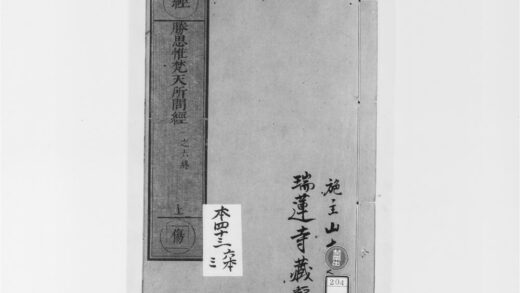 經
勝思惟梵天所問經
之六終
上
傷
施主山
瑞蓮寺藏
本四十三
六本
三
204